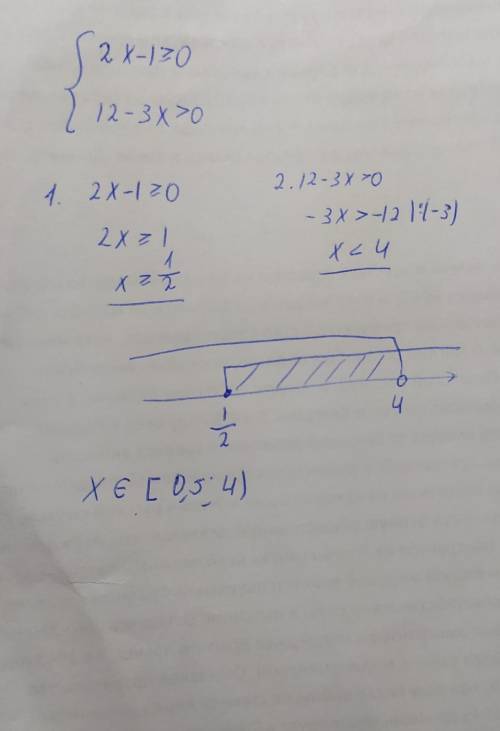 2x-1≥0
12-3x>0
1. 2x-1≥0
2x≥1
x≥1/2
2. 12-3x>0
-3x>-12 |:(-3)
x<4
1/2
4
X∈[0,5; 4)